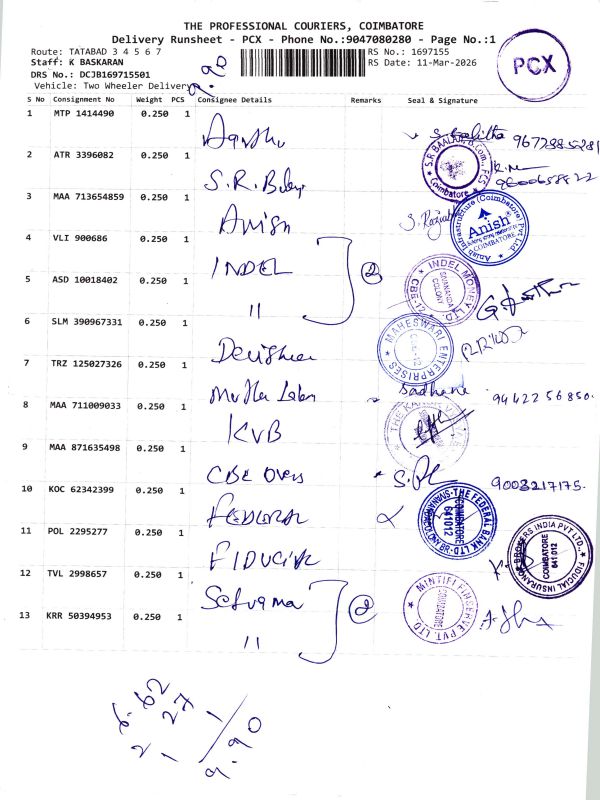 THE PROFESSIONAL COURIERS, COIMBATORE
Delivery Runsheet - PCX - Phone No.:9047080280 - Page No.:1
Route: TATABAD 3 4 5 6 7
RS No.: 1697155
Staff: K BASKARAN
RS Date: 11-Mar-2026
DRS No.: DCJB169715501
Vehicle: Two Wheeler Delivery
9.90
PCX
S No Consignment No Weight PCS Consignee Details Remarks Seal & Signature
1 MTP 1414490 0.250 1
2 ATR 3396082 0.250 1 S.R.
S.R. BAALAJI, B.Com., FCS Coimbatore
3 MAA 713654859 0.250 1 Anish
Anish Infrastructure (Coimbatore) Pvt Ltd. Anish COIMBATORE
4 VLI 900686 0.250 1 INDEL 2
INDEL MONEY LTD. SIVANANDA COLONY CBE-12
5 ASD 10018402 0.250 1 "
6 SLM 390967331 0.250 1
MAHESWARI ENTERPRISES
7 TRZ 125027326 0.250 1 Sadhana 94422 56850.
8 MAA 711009033 0.250 1 KVB
9 MAA 871635498 0.250 1 CBE Overs S. 9003217175.
10 KOC 62342399 0.250 1 FEDERAL
THE FEDERAL BANK LTD COIMBATORE 641012
11 POL 2295277 0.250 1
FIDUCIAL INSURANCE BROKERS INDIA PVT LTD., COIMBATORE 641 012
12 TVL 2998657 0.250 1 2
MINTIFI FINSERVE PVT. LTD. COIMBATORE
13 KRR 50394953 0.250 1 "
6.62
27 1
2 1
9.90